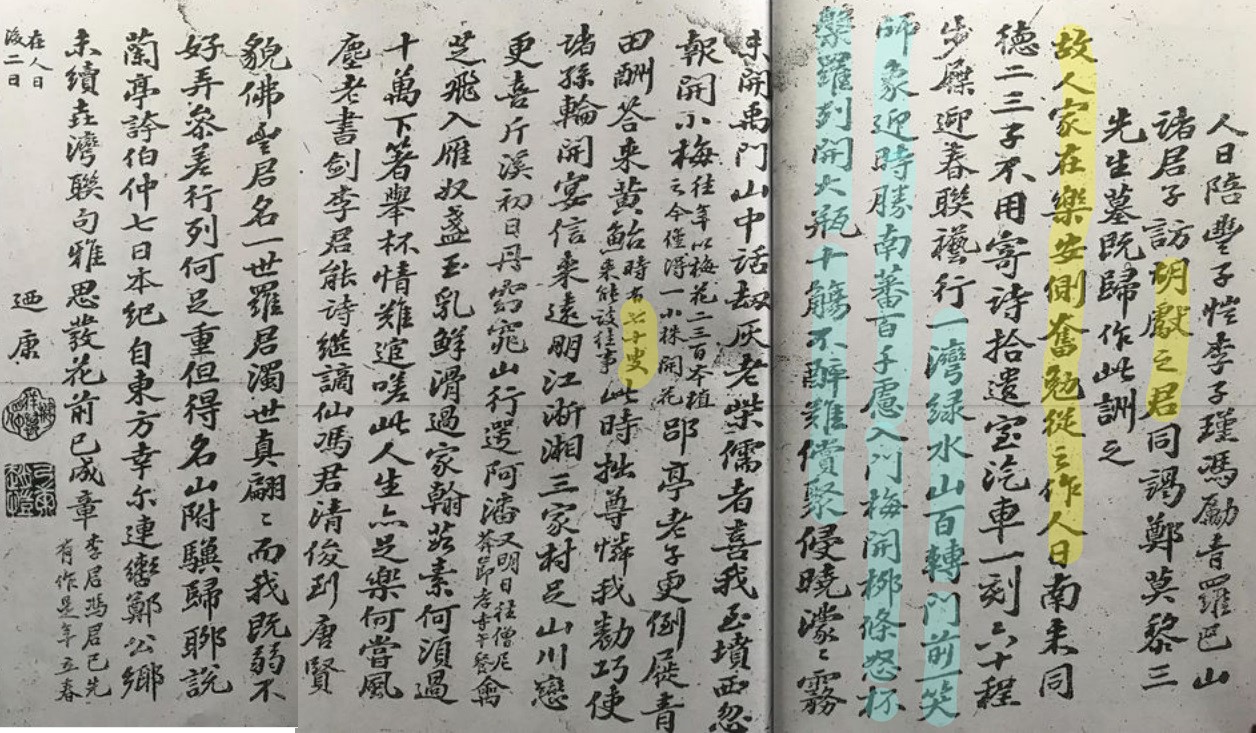 人日陪豐子愷李子瑾馮勵青羅邑山
諸君子訪胡獻之君同謁鄭莫黎三
先生墓既歸作此詶之
故人家在樂安側奮勉從之作人日南来同
德二三子不用寄詩拾遺室汽車一刻六十程
步屧迎春聯襼行一灣緑水山百轉門前一笑
師象迎時勝南蕃百子慮入門梅開栁條怒杯
槃羅列開大瓶十觴不醉難償聚侵曉濛〻霧
未開禹門山中話劫灰老柴儒者喜我至墳西忽
報開小梅往年以梅花二三百本植之今僅得一小株開花郘亭老子更倒屣青
田酬答来黄鮐時有七十叟来能談往事此時拙尊憐我勬巧使
諸孫輪開宴信来遠朋江淅湘三家村足山川戀
更喜斤溪初日丹窈窕山行選阿潘又明日往僧尼節孝寺午餐禽
芝飛入雁奴盞玉乳鮮滑過家翰蔬素何須過
十萬下箸舉杯情難逭嗟此人生亦足樂何當風
塵老書劍李君能詩继謫仙馮君清俊到唐賢
貌佛聖君名一世羅君濁世真翩〻而我既弱不
好弄參差行列何足重但得名山附驥歸聊說
蘭亭誇伯仲七日本紀自東方幸尔連鑣鄭公鄉
未續垚灣聯句雅思發花前已成章李君馮君已先有作是年立春
在人日後二日 迺康